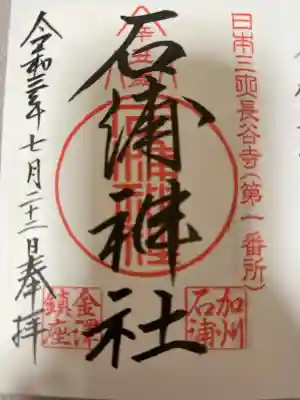 日本三 長谷寺(第一番所)
加州
石浦
石浦神社
金澤
鎮座
令和三年七月二十二日奉拝